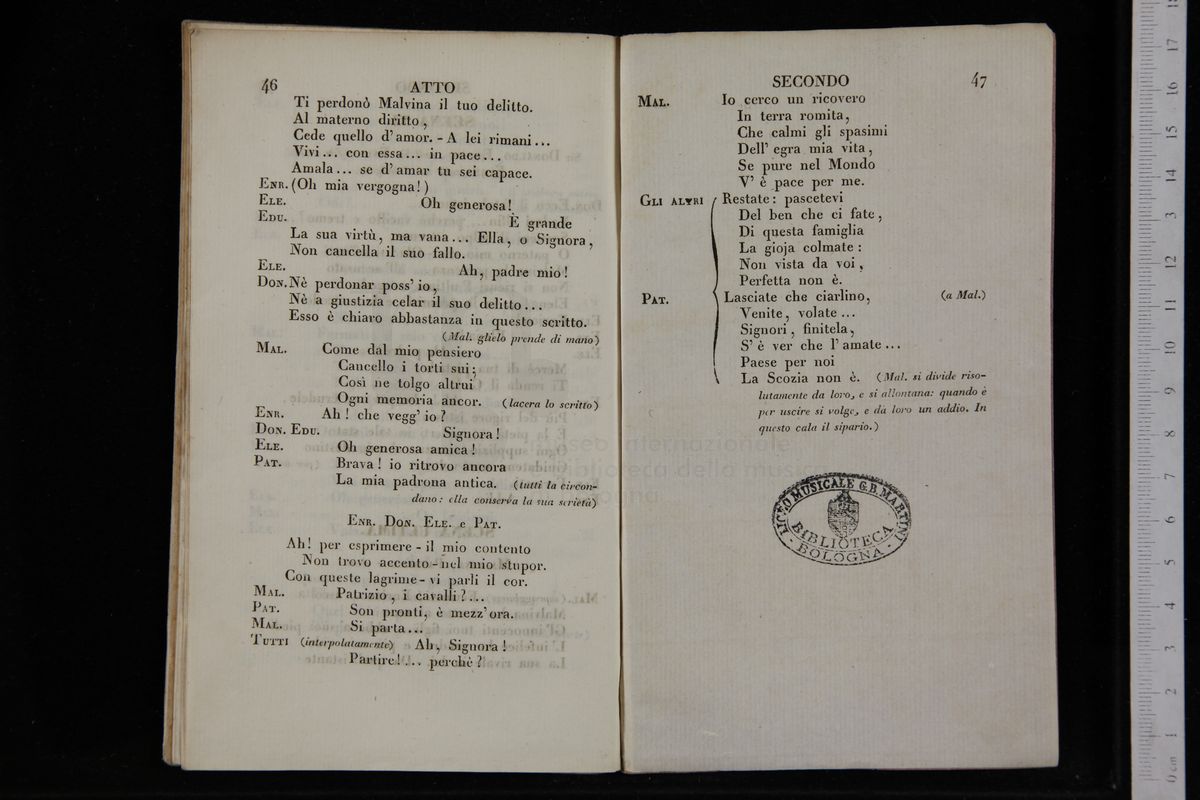 46 ATTO
Ti perdonò Malvina il tuo delitto.
Al materno diritto,
Cede quello d'amor. - A lei rimani...
Vivi... con essa... in pace...
Amala... se d'amar tu sei capace.
ENR. (Oh mia vergogna!)
ELE. Oh generosa!
EDU. È grande
La sua virtù, ma vana... Ella, o Signora,
Non cancella il suo fallo.
ELE. Ah, padre mio!
DON. Nè perdonar poss' io,
Nè a giustizia celar il suo delitto...
Esso è chiaro abbastanza in questo scritto.
(Mal. glielo prende di mano)
MAL. Come dal mio pensiero
Cancello i torti sui;
Così ne tolgo altrui
Ogni memoria ancor. (lacera lo scritto)
ENR. Ah! che vegg' io?
DON. EDU. Signora!
ELE. Oh generosa amica!
PAT. Brava! io ritrovo ancora
La mia padrona antica. (tutti la circon-
dano: ella conserva la sua serietà)
ENR. DON. ELE. e PAT.
Ah! per esprimere - il mio contento
Non trovo accento - nel mio stupor.
Con queste lagrime - vi parli il cor.
MAL. Patrizio, i cavalli?...
PAT. Son pronti, è mezz' ora.
MAL. Si parta...
TUTTI (interpolatamente) Ah, Signora!
Partire!... perchè?
SECONDO 47
MAL. Io cerco un ricovero
In terra romita,
Che calmi gli spasimi
Dell' egra mia vita,
Se pure nel Mondo
V' è pace per me.
GLI ALTRI Restate: pascetevi
Del ben che ci fate,
Di questa famiglia
La gioja colmate:
Non vista da voi,
Perfetta non è.
PAT. Lasciate che ciarlino, (a Mal.)
Venite, volate...
Signori, finitela,
S' è ver che l' amate...
Paese per noi
La Scozia non è. (Mal. si divide riso-
lutamente da loro, e si allontana: quando è
per uscire si volge, e dà loro un addio. In
questo cala il sipario.)
LICEO MUSICALE G.B. MARTINI
BIBLIOTECA
- BOLOGNA -
museo internazionale
biblioteca della musica
bologna